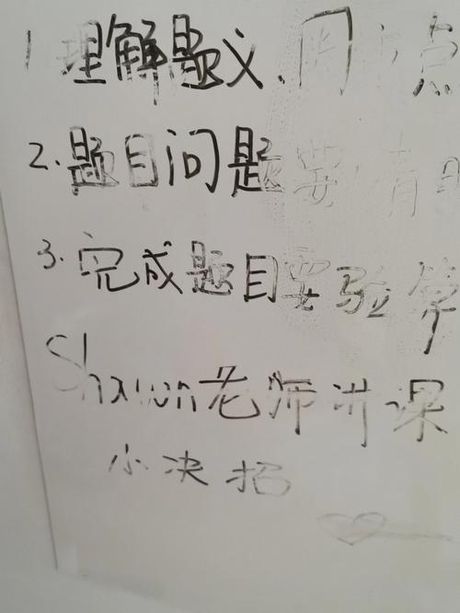 1 理解题义、
2. 题目问题要清
3. 完成题目要验算
Shawn老师讲课
小决招